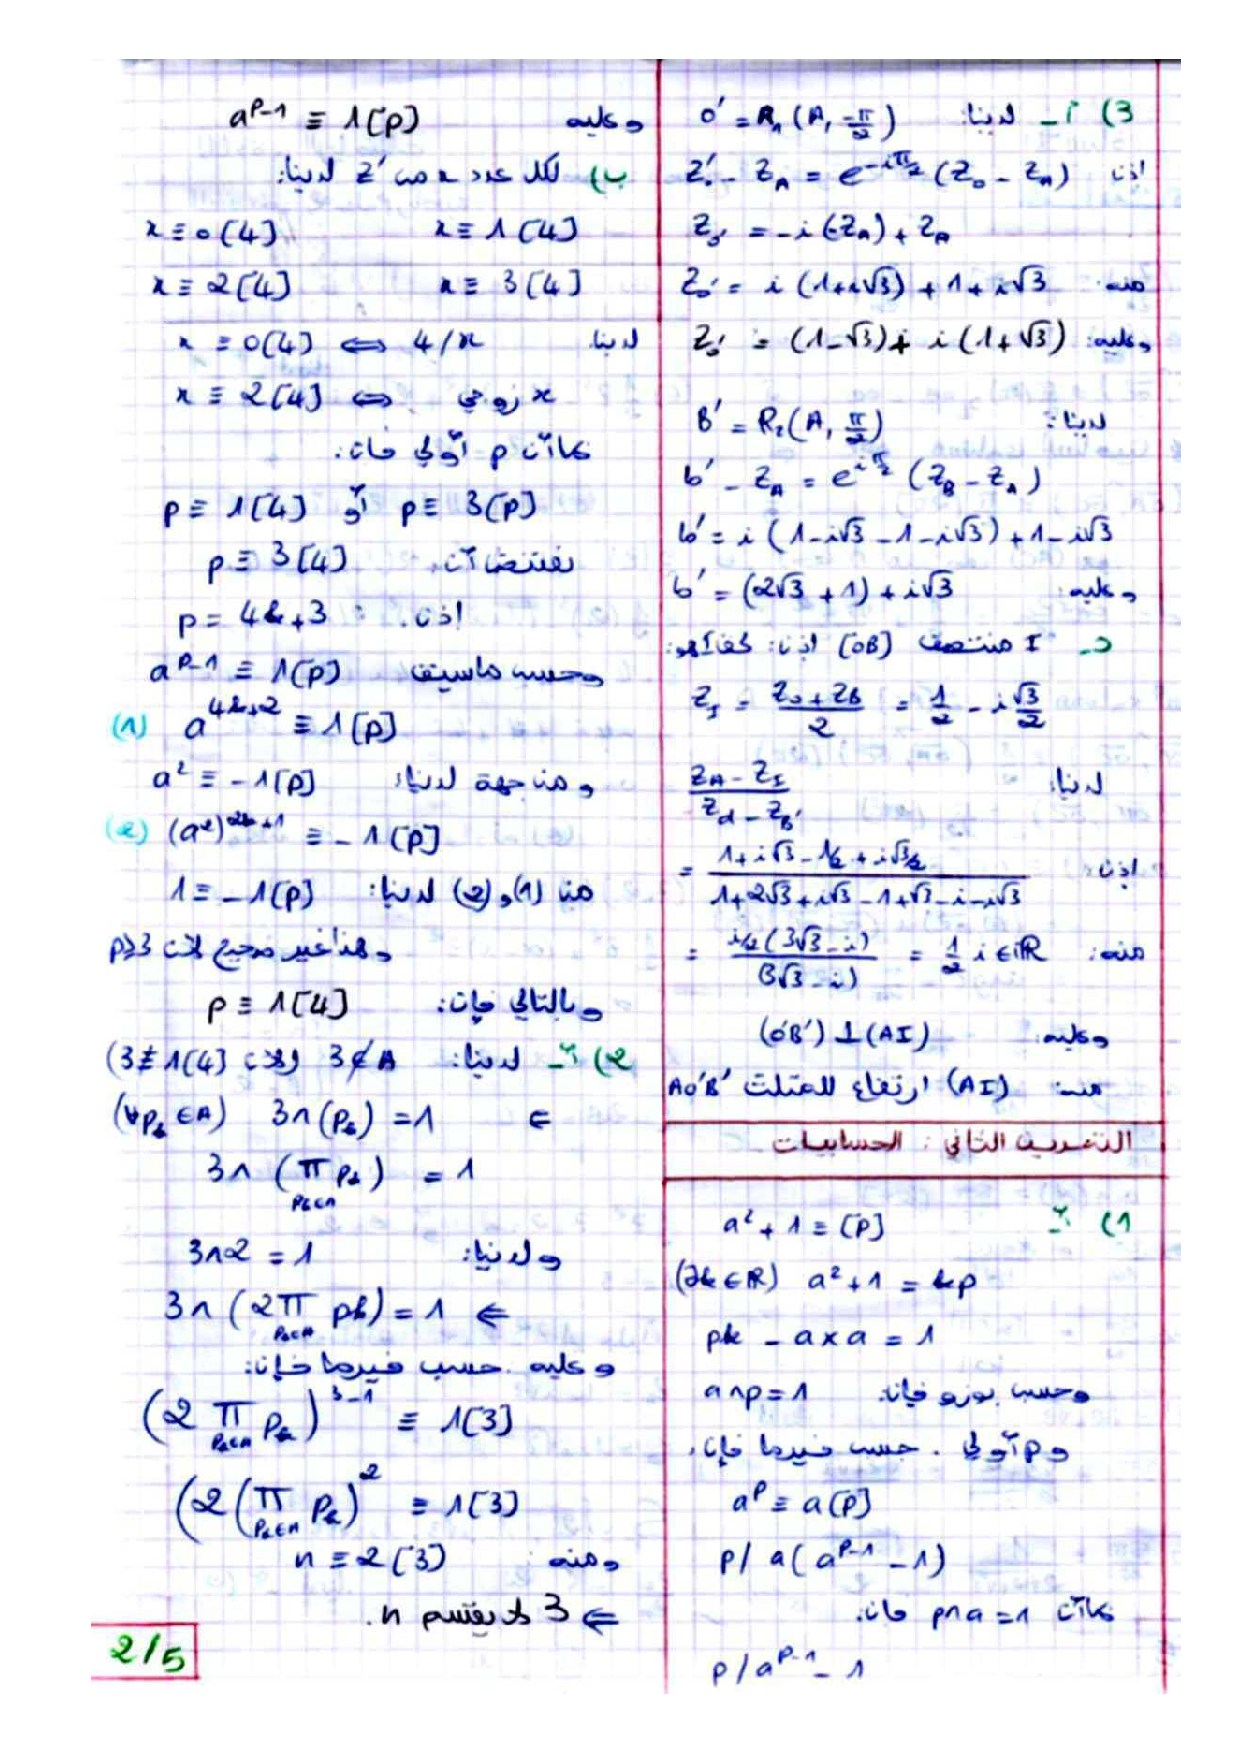 3) أ_ لدينا: O' = R₁ (A, -π/2)
اذن Z'₀ - Z_A = e^{-iπ/2} (Z₀ - Z_A)
Z₀' = -i (-Z_A) + Z_A
منه Z₀' = i (1+i√3) + 1 + i√3
وعليه: Z₀' = (1-√3) + i (1+√3)
لدينا: B' = R₂(A, π/2)
b' - Z_A = e^{iπ/2} (Z_B - Z_A)
b' = i (1-i√3 - 1 - i√3) + 1 - i√3
وعليه: b' = (2√3 + 1) + i√3
I منتصف [OB] اذن:
Z_I = (Z₀ + Z_B)/2 = 1/2 - i √3/2
لدينا: (Z_A - Z_I)/(Z_{o'} - Z_{B'})
اذن: = (1 + i√3 - 1/2 + i√3/2)/(1+2√3+i√3 - 1+√3 - i - i√3)
منه: = (i/2 (3√3 - i))/(3√3 - i) = 1/2 i ∈ iℝ
وعليه (O'B') ⊥ (AI)
منه (AI) ارتفاع للمثلث AO'B'
التمرين الثاني : الحسابيات
1) أ_ a² + 1 ≡ [p]
(∃k ∈ ℝ) a² + 1 = kp
pk - a×a = 1
وحسب بوزو فإن a∧p = 1
و p أولي . حسب فيرما فإن.
a^p ≡ a [p]
p / a( a^{p-1} - 1)
بما أن p∧a = 1 فان.
p / a^{p-1} - 1
وعليه a^{p-1} ≡ 1 [p]
ب) لكل عدد x من Z لدينا:
x ≡ 0 [4] x ≡ 1 [4]
x ≡ 2 [4] x ≡ 3 [4]
لدينا x ≡ 0[4] ⟺ 4/x
x ≡ 2[4] ⟺ x زوجي
بما أن p أولي فان.
p ≡ 1[4] أو p ≡ 3[p]
نفترض أن p ≡ 3 [4]
اذن. p = 4k + 3
وحسب ماسبق a^{p-1} ≡ 1[p]
(1) a^{4k+2} ≡ 1 [p]
ومن جهة لدينا: a² ≡ -1[p]
(2) (a²)^{2k+1} ≡ - 1 [p]
من (1) و (2) لدينا: 1 ≡ - 1[p]
وهذا غير صحيح لأن p ≥ 3
وبالتالي فإن: p ≡ 1[4]
2) أ_ لدينا: 3 ∉ A (لأن 3 ≢ 1[4])
⇐ 3∧(p_k) = 1 (∀p_k ∈ A)
3∧ (∏_{p_k∈A} p_k) = 1
ولدينا: 3∧2 = 1
⇐ 3∧ (2 ∏_{p_k∈A} pk) = 1
وعليه . حسب فيرما فإن:
(2 ∏_{p_k∈A} p_k)^{3-1} ≡ 1[3]
(2 (∏_{p_k∈A} p_k)² ≡ 1[3]
ومنه n ≡ 2 [3]
⇐ 3 لا يقسم n.
2/5